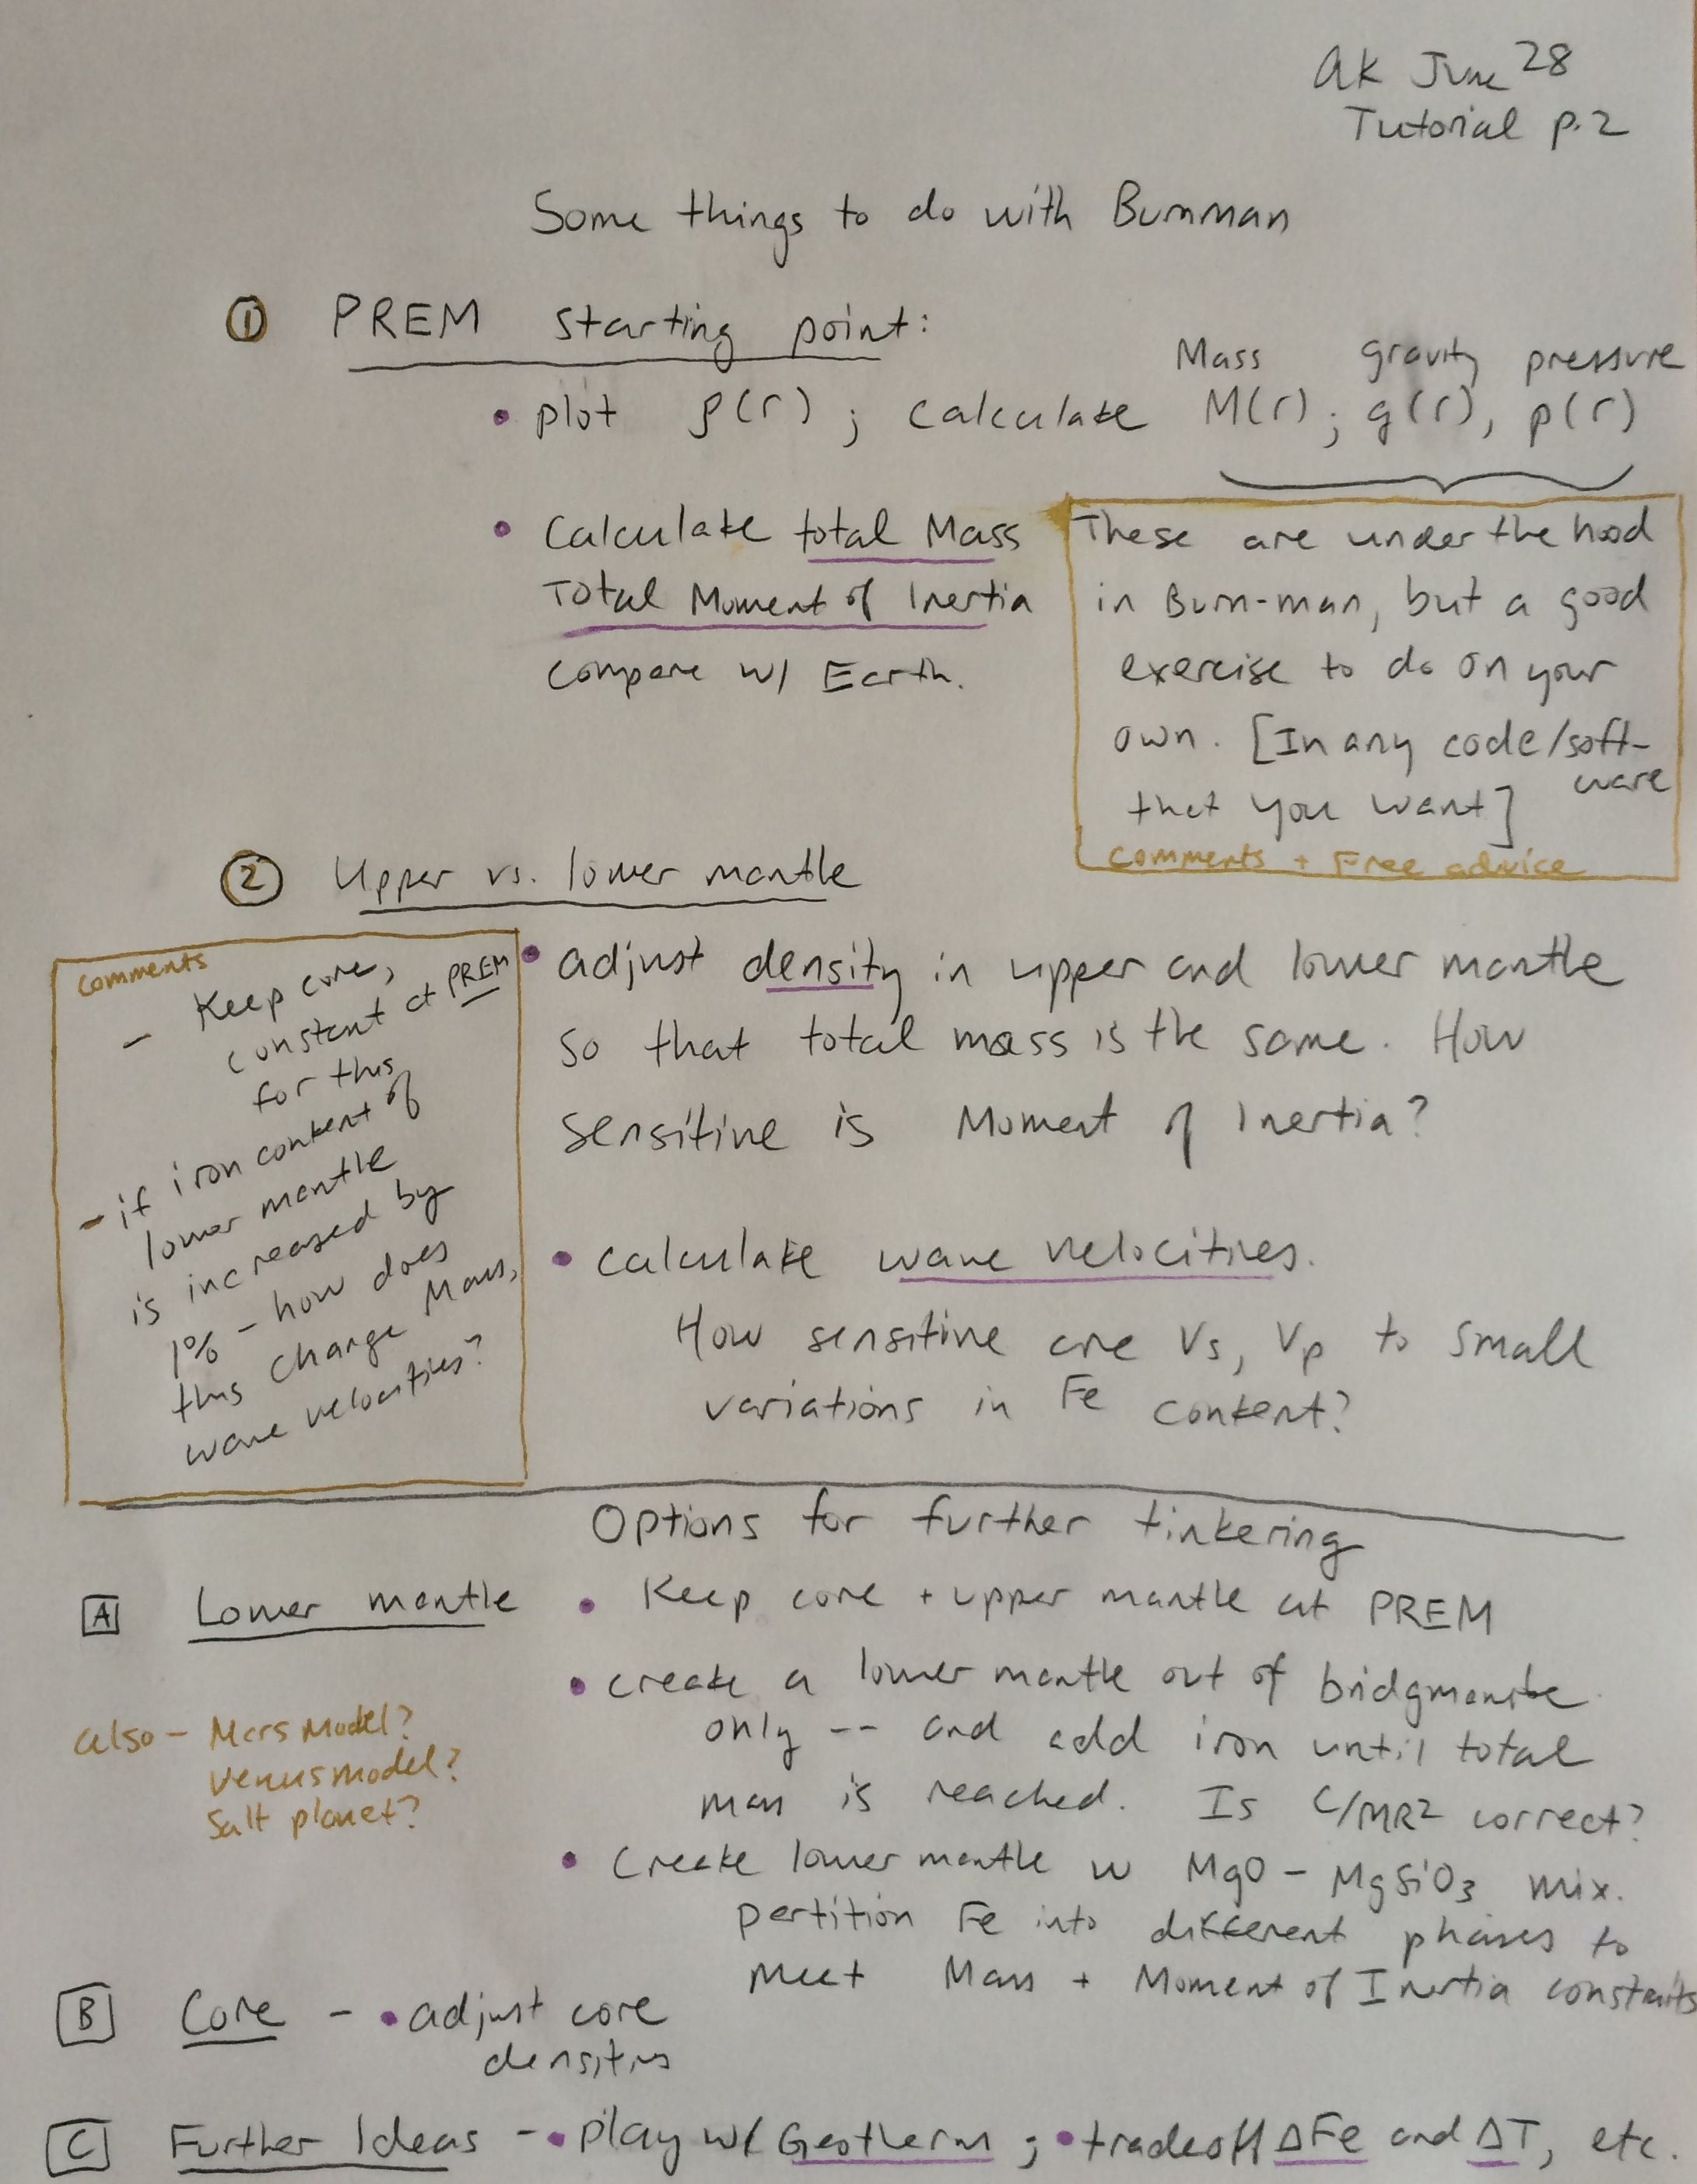 ak June 28
Tutorial p.2
Some things to do with Burnman
① PREM starting point:
Mass gravity pressure
• plot ρ(r); calculate M(r); g(r), p(r)
• Calculate total Mass
Total Moment of Inertia
compare w/ Earth.
These are under the hood
in Burn-man, but a good
exercise to do on your
own. [In any code/soft-
ware
that you want]
comments + Free advice
② Upper vs. lower mantle
comments
- Keep core,
constant at PREM
for this
- if iron content of
lower mantle
is increased by
1% - how does
this change Mass,
wave velocities?
• adjust density in upper and lower mantle
so that total mass is the same. How
sensitive is Moment of Inertia?
• calculate wave velocitives.
How sensitive are Vs, Vp to small
variations in Fe content?
Options for further tinkering
A Lower mantle
• Keep core + upper mantle at PREM
• create a lower mantle out of bridgmanite
only -- and add iron until total
mass is reached. Is C/MR² correct?
• Create lower mantle w MgO - MgSiO₃ mix.
partition Fe into different phases to
meet Mass + Moment of Inertia constraints
also - Mars Model?
Venus model?
Salt planet?
B Core - • adjust core
densities
C Further Ideas - • Play w/ Geotherm ; • tradeoff ΔFe and ΔT, etc.